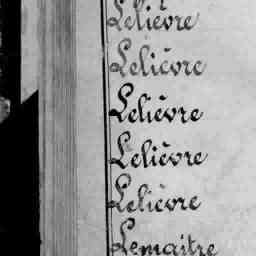 Lelièvre
Lelièvre
Lelièvre
Lelièvre
Lelièvre
Lemaitre